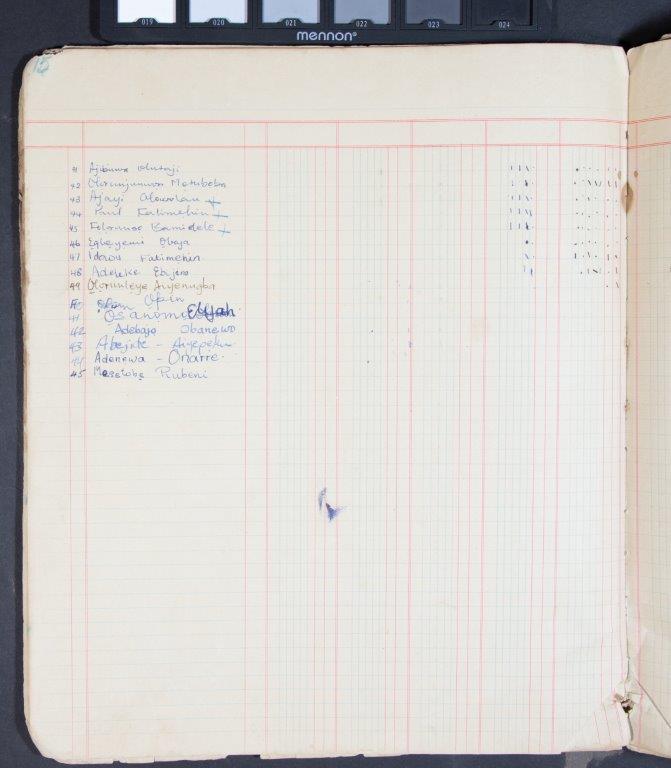 019 020 021 022 023 024
mennon®
15
41 Ajibuwa Olutoji
42 Olorunjuwon Metubola
43 Ajayi Olowolan +
44 Paul Fatimehin +
45 Folorunso Bamidele +
46 Egbeyemi Obaja
47 Idowu Fatimehin
48 Adeleke Ebijimo
49 Olorunleye Aiyenugba
Opin
41 Osanomi Elijah
42 Adebajo Obanewo
43 Abejide - Aiyepeku
44 Adenewa - Onarre
45 Meselobe Rubeni